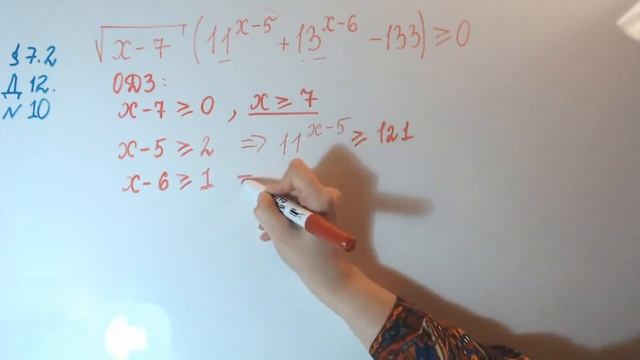 §7.2
Д 12.
№10
√(x-7) (11^(x-5) + 13^(x-6) - 133) ≥ 0
ОДЗ:
x-7 ≥ 0 , x ≥ 7
x-5 ≥ 2 ⇒ 11^(x-5) ≥ 121
x-6 ≥ 1